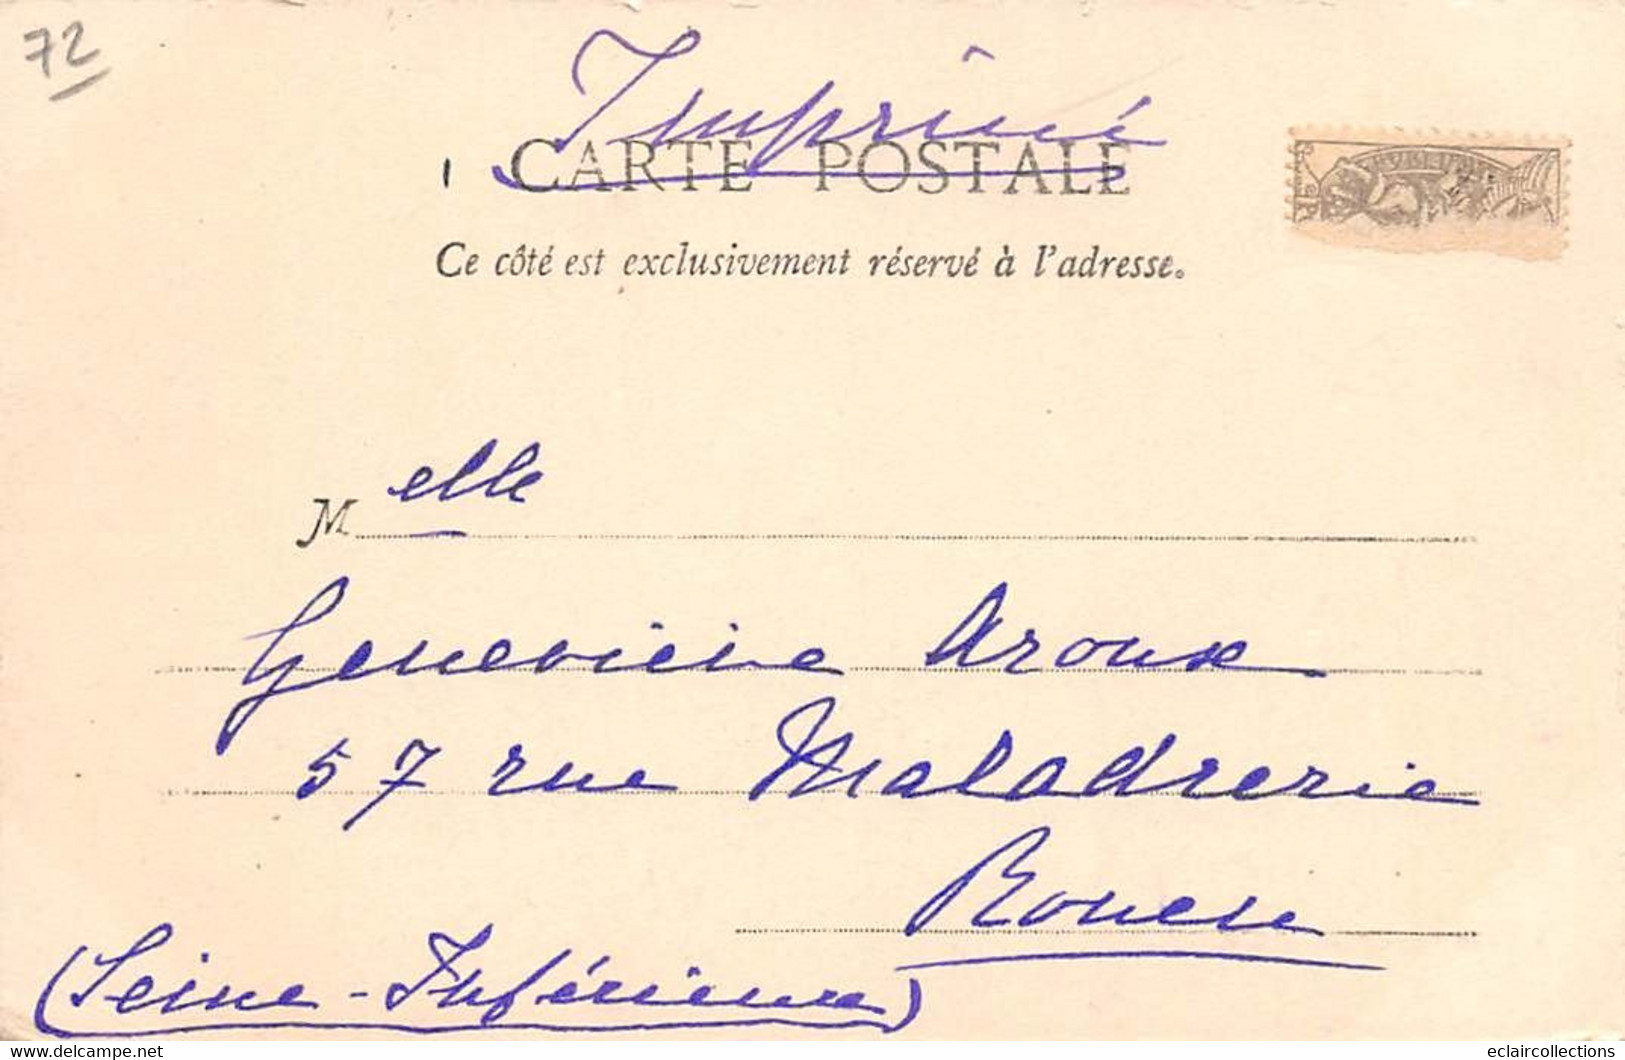 72
Imprimé
CARTE POSTALE
Ce côté est exclusivement réservé à l'adresse.
M elle
Geneviève Aroux
57 rue Maladrerie
Rouen
(Seine-Inférieure)
www.delcampe.net
eclaircollections